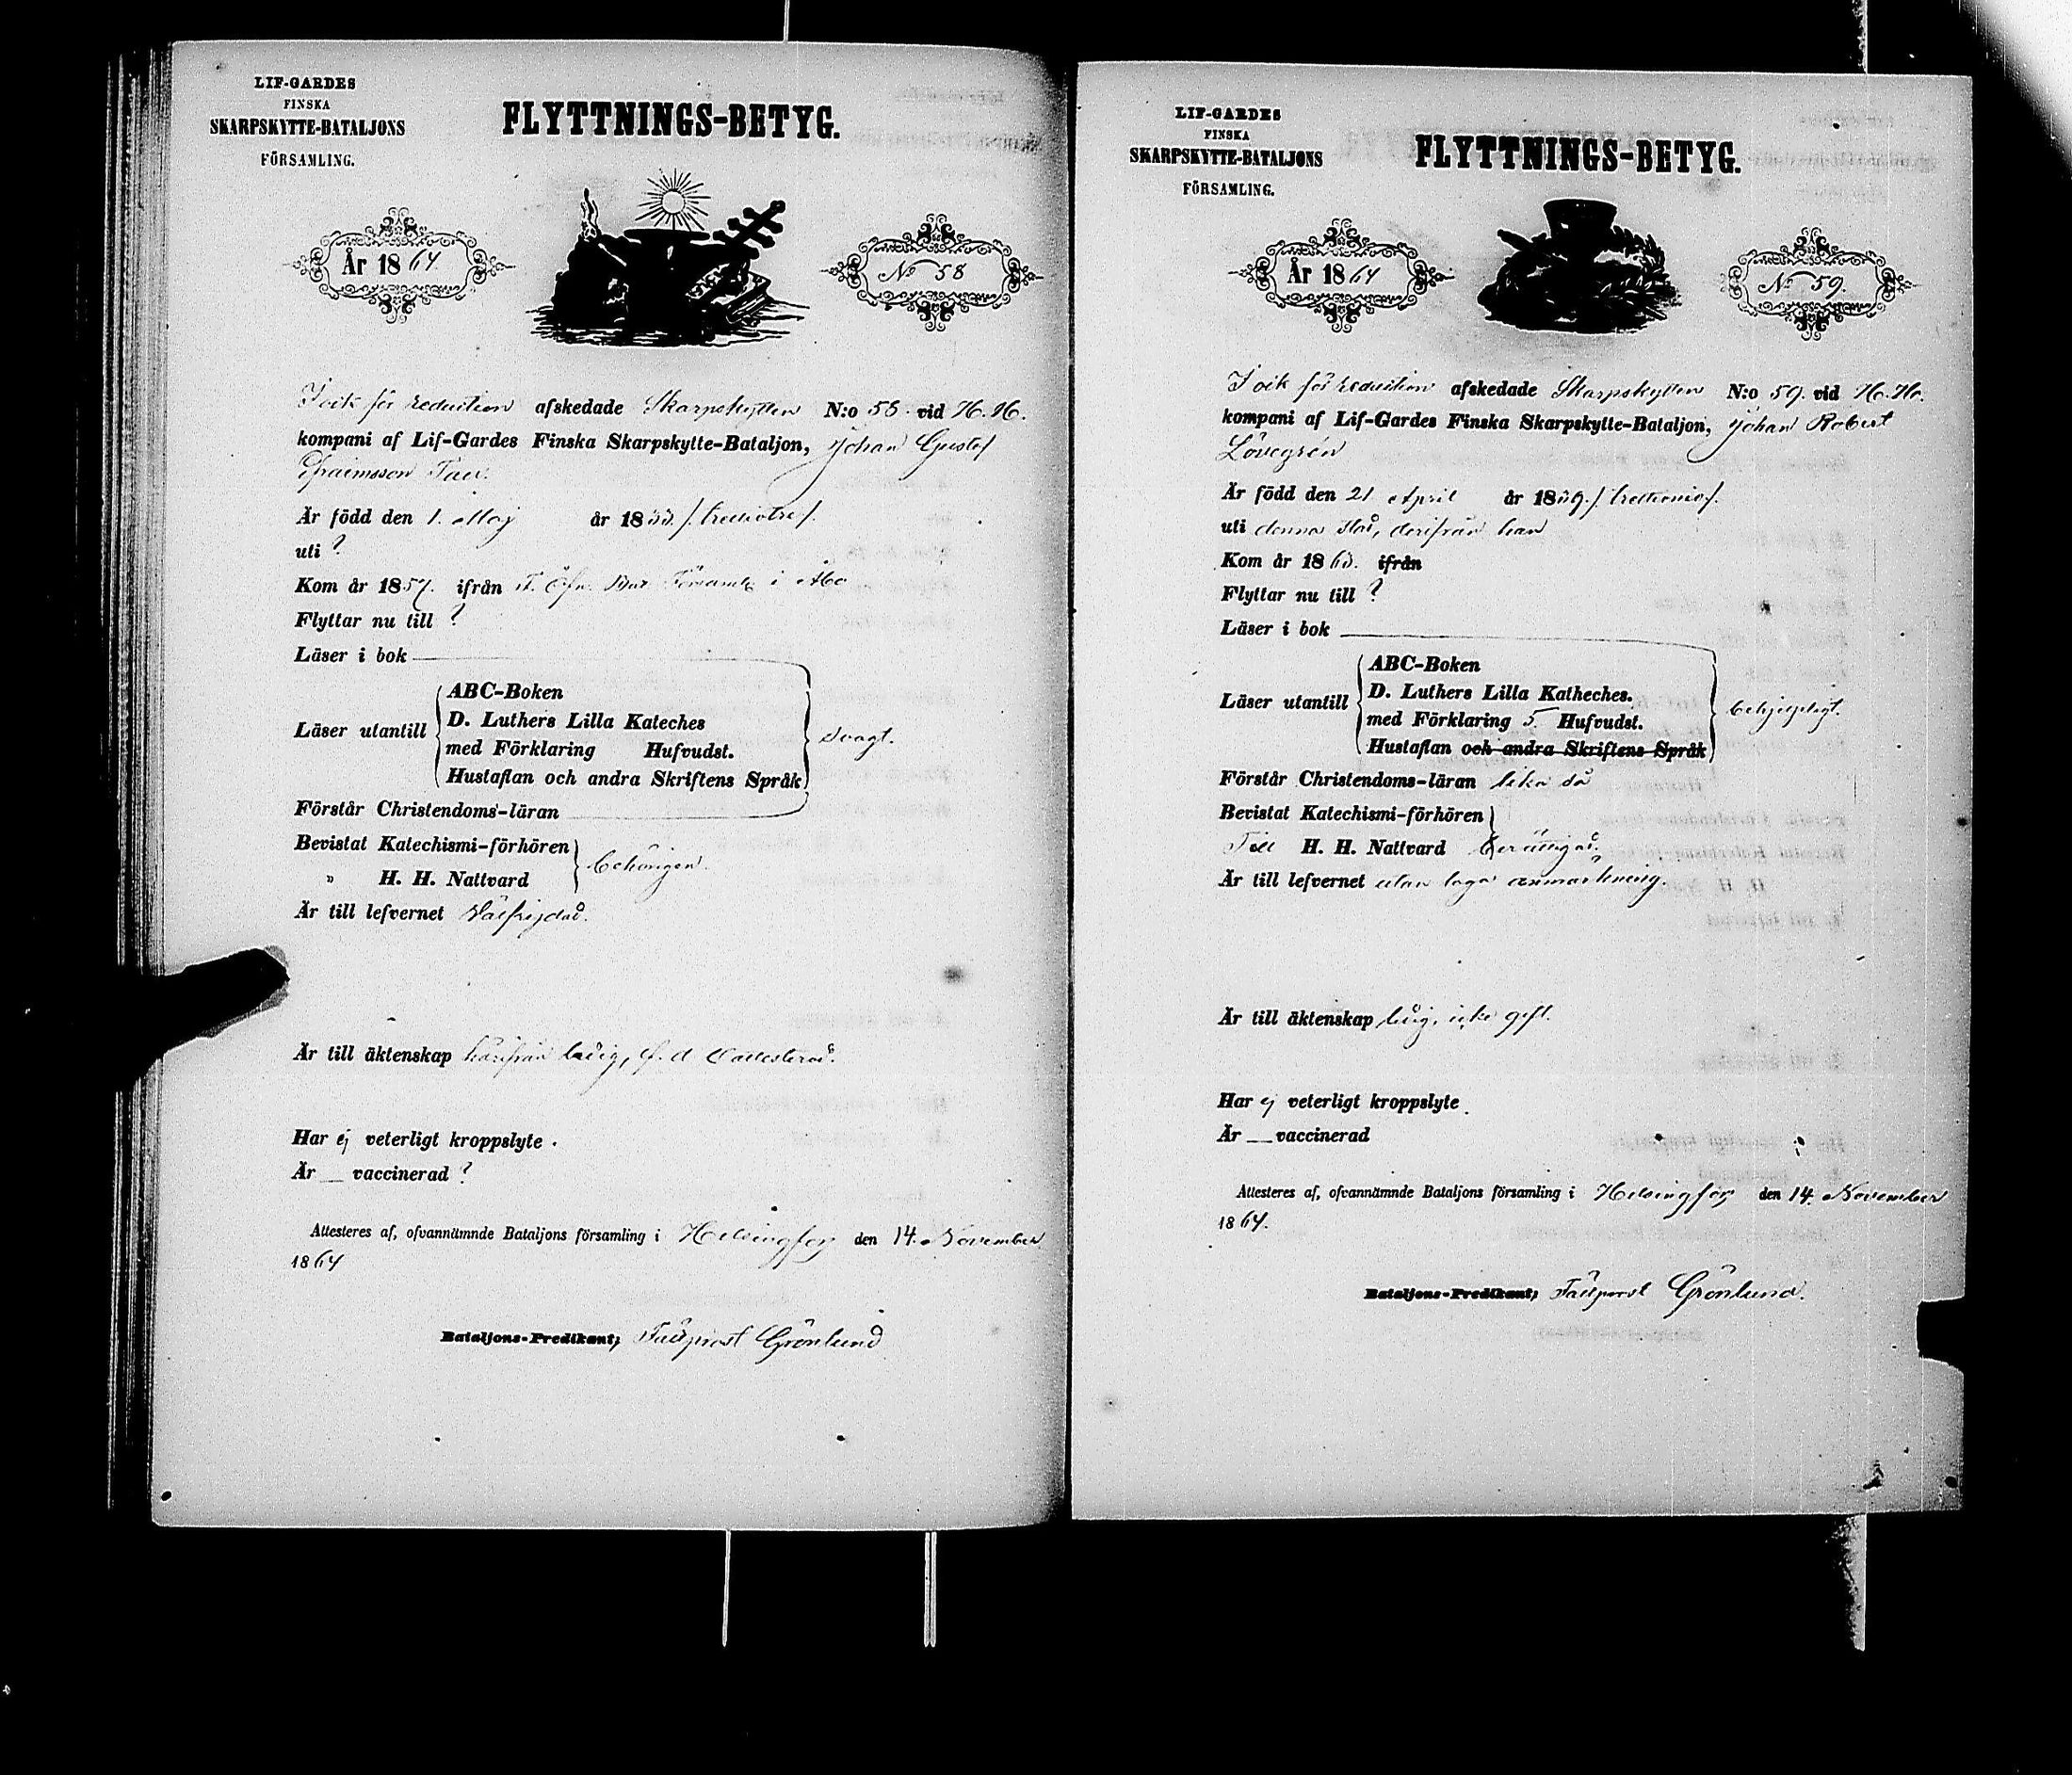 LIF-GARDES
FINSKA
SKARPSKYTTE-BATALJONS
FÖRSAMLING.
FLYTTNINGS-BETYG.
År 1864.
No 58
för reduction afskedade Skarpskytten N:o 58. vid H. H.
kompani af Lif-Gardes Finska Skarpskytte-Bataljon, Johan Gustaf
Efraimsson
Är född den 1. Maj år 1833 /trediotre/.
uti ?
Kom år 1857. ifrån i Åbo
Flyttar nu till ?
Läser i bok
Läser utantill
ABC-Boken
D. Luthers Lilla Kateches
med Förklaring Hufvudst.
Hustaflan och andra Skriftens Språk
svagt.
Förstår Christendoms-läran
Bevistat Katechismi-förhören
" H. H. Nattvard
behörigen.
Är till lefvernet Välfrejdad.
Är till äktenskap härifrån ledig, f. d.
Har ej veterligt kroppslyte.
Är __ vaccinerad ?
Attesteres af, ofvannämnde Bataljons församling i Helsingfors den 14. November
1864
Bataljons-Predikant; Fältprost Grönlund
LIF-GARDES
FINSKA
SKARPSKYTTE-BATALJONS
FÖRSAMLING.
FLYTTNINGS-BETYG.
År 1864
No 59.
för reduction afskedade Skarpskytten N:o 59. vid H. H.
kompani af Lif-Gardes Finska Skarpskytte-Bataljon, Johan Robert
Lövegrén
Är född den 21 April år 1839. /trettionio/.
uti denna stad, derifrån han
Kom år 1863. ifrån
Flyttar nu till ?
Läser i bok
Läser utantill
ABC-Boken
D. Luthers Lilla Katheches.
med Förklaring 5. Hufvudst.
Hustaflan och andra Skriftens Språk
behjelpligt.
Förstår Christendoms-läran lika så
Bevistat Katechismi-förhören
Till H. H. Nattvard berättigad.
Är till lefvernet utan laga anmärkning.
Är till äktenskap ledig, icke gift.
Har ej veterligt kroppslyte.
Är __ vaccinerad
Attesteres af, ofvannämnde Bataljons församling i Helsingfors den 14. November
1864.
Bataljons-Predikant; Fältprost Grönlund.